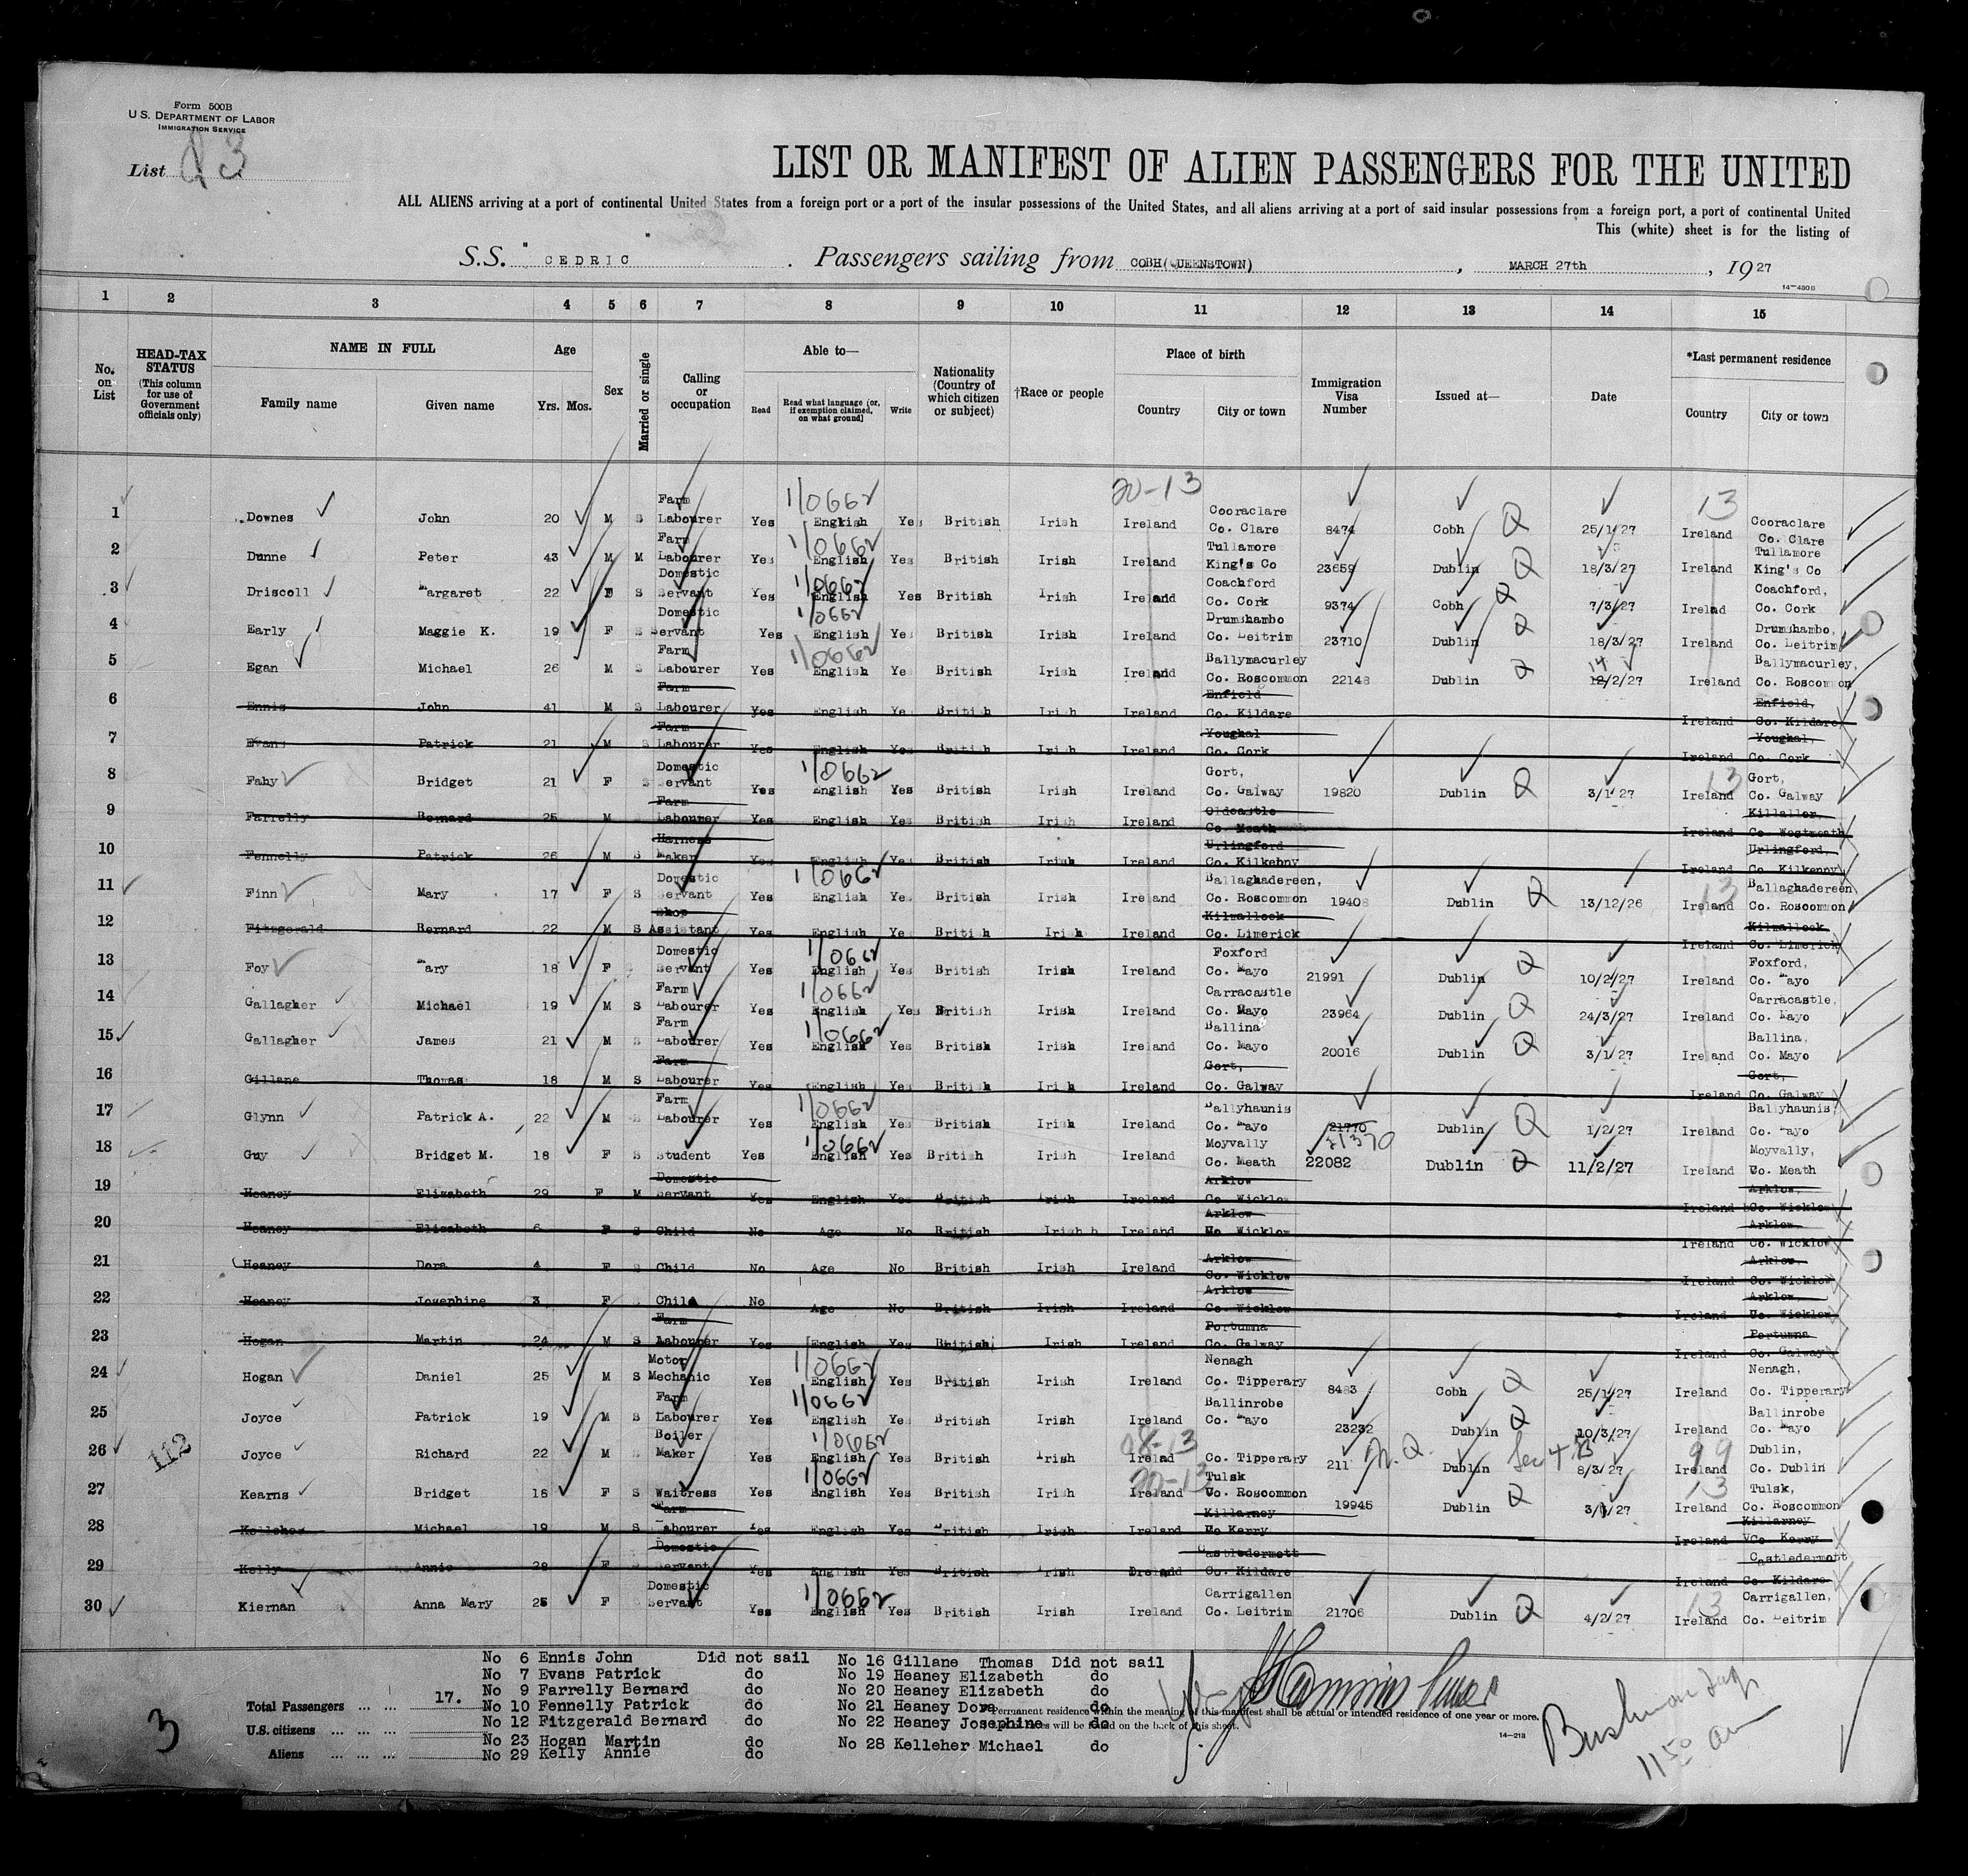 Form 500B
U. S. DEPARTMENT OF LABOR
IMMIGRATION SERVICE
List 3
LIST OR MANIFEST OF ALIEN PASSENGERS FOR THE UNITED
ALL ALIENS arriving at a port of continental United States from a foreign port or a port of the insular possessions of the United States, and all aliens arriving at a port of said insular possessions from a foreign port, a port of continental United
This (white) sheet is for the listing of
S.S. "CEDRIC". Passengers sailing from COBH(QUEENSTOWN), MARCH 27th, 1927
14-4808
1 2 3 4 5 6 7 8 9 10 11 12 13 14 15
No. on List
HEAD-TAX STATUS (This column for use of Government officials only)
NAME IN FULL
Family name Given name
Age Yrs. Mos.
Sex
Married or single
Calling or occupation
Able to—
Read Read what language (or, if exemption claimed, on what ground) Write
Nationality (Country of which citizen or subject)
†Race or people
Place of birth
Country City or town
Immigration Visa Number
Issued at—
Date
*Last permanent residence
Country City or town
20-13
1 Downes John 20 M S Farm Labourer Yes English 1/0662 Yes British Irish Ireland Cooraclare Co. Clare 8474 Cobh Q 25/1/27 13 Ireland Cooraclare Co. Clare
2 Dunne Peter 43 M M Farm Labourer Yes English 1/0662 Yes British Irish Ireland Tullamore King's Co 23659 Dublin Q 18/3/27 Ireland Tullamore King's Co
3 Driscoll Margaret 22 F S Domestic Servant Yes English 1/0662 Yes British Irish Ireland Coachford Co. Cork 9374 Cobh Q 7/3/27 Irelad Coachford, Co. Cork
4 Early Maggie K. 19 F S Domestic Servant Yes English 1/0662 Yes British Irish Ireland Drumshambo Co. Leitrim 23710 Dublin Q 18/3/27 Ireland Drumshambo, Co. Leitrim
5 Egan Michael 26 M S Farm Labourer Yes English 1/0662 Yes British Irish Ireland Ballymacurley Co. Roscommon 22148 Dublin Q 14 12/2/27 Ireland Ballymacurley, Co. Roscommon
6 Ennis John 41 M S Farm Labourer Yes English Yes British Irish Ireland Enfield Co. Kildare Ireland Enfield, Co. Kildare
7 Evans Patrick 21 M S Farm Labourer Yes English Yes British Irish Ireland Youghal Co. Cork Ireland Youghal, Co. Cork
8 Fahy Bridget 21 F S Domestic Servant Yes English 1/0662 Yes British Irish Ireland Gort, Co. Galway 19820 Dublin Q 3/1/27 13 Ireland Gort, Co. Galway
9 Farrelly Bernard 25 M Farm Labourer Yes English Yes British Irish Ireland Oldcastle Co. Meath Ireland Killaller, Co. Westmeath
10 Fennelly Patrick 26 M S Harness Maker Yes English Yes British Irish Ireland Urlingford Co. Kilkenny Ireland Urlingford, Co. Kilkenny
11 Finn Mary 17 F S Domestic Servant Yes English 1/0662 Yes British Irish Ireland Ballaghadereen, Co. Roscommon 19408 Dublin Q 13/12/26 13 Ireland Ballaghadereen Co. Roscommon
12 Fitzgerald Bernard 22 M S Shop Assistant Yes English Yes British Irish Ireland Kilmallock Co. Limerick Ireland Kilmallock, Co. Limerick
13 Foy Mary 18 F Domestic Servant Yes English 1/0662 Yes British Irish Ireland Foxford Co. Mayo 21991 Dublin Q 10/2/27 Ireland Foxford, Co. Mayo
14 Gallagher Michael 19 M S Farm Labourer Yes English 1/0662 Yes British Irish Ireland Carracastle Co. Mayo 23964 Dublin Q 24/3/27 Ireland Carracastle, Co. Mayo
15 Gallagher James 21 M S Farm Labourer Yes English 1/0662 Yes British Irish Ireland Ballina Co. Mayo 20016 Dublin Q 3/1/27 Ireland Ballina, Co. Mayo
16 Gillane Thomas 18 M S Farm Labourer Yes English Yes British Irish Ireland Gort, Co. Galway Ireland Gort, Co. Galway
17 Glynn Patrick A. 22 M S Farm Labourer Yes English 1/0662 Yes British Irish Ireland Ballyhaunis Co. Mayo 21770 21370 Dublin Q 1/2/27 Ireland Ballyhaunis, Co. Mayo
18 Guy Bridget M. 18 F S Student Yes English 1/0662 Yes British Irish Ireland Moyvally Co. Meath 22082 Dublin Q 11/2/27 Ireland Moyvally, Co. Meath
19 Heaney Elizabeth 29 F M Domestic Servant Yes English Yes British Irish Ireland Arklow Co Wicklow Ireland Arklow, Co. Wicklow
20 Heaney Elizabeth 6 F S Child No Age No British Irish Ireland Arklow Co. Wicklow Ireland Arklow Co. Wicklow
21 Heaney Dora 4 F S Child No Age No British Irish Ireland Arklow Co. Wicklow Ireland Arklow, Co. Wicklow
22 Heaney Josephine 3 F Child No Age No British Irish Ireland Arklow Co. Wicklow Ireland Arklow, Co. Wicklow
23 Hogan Martin 24 M S Farm Labourer Yes English Yes British Irish Ireland Portumna Co. Galway Ireland Portumna Co. Galway
24 Hogan Daniel 25 M S Motor Mechanic Yes English 1/0662 Yes British Irish Ireland Nenagh Co. Tipperary 8483 Cobh Q 25/1/27 Ireland Nenagh, Co. Tipperary
25 Joyce Patrick 19 M S Farm Labourer Yes English 1/0662 Yes British Irish Ireland Ballinrobe Co. Mayo 23232 Dublin Q 10/3/27 Ireland Ballinrobe Co. Mayo
26 112 Joyce Richard 22 M Boiler Maker Yes English 1/0662 Yes British Irish 08-13 Ireland Co. Tipperary 211 N.Q. Dublin Sec 4 B 8/3/27 99 Ireland Dublin, Co. Dublin
27 Kearns Bridget 18 F S Waitress Yes English 1/0662 Yes British Irish 20-13 Ireland Tulsk Co. Roscommon 19945 Dublin Q 3/1/27 13 Ireland Tulsk, Co. Roscommon
28 Kelleher Michael 19 M S Farm Labourer Yes English Yes British Irish Ireland Killarney Co Kerry Ireland Killarney Co. Kerry
29 Kelly Annie 28 F Domestic Servant Yes English Yes British Irish Ireladd Castledermott Co. Kildare Ireland Castledermott Co. Kildare
30 Kiernan Anna Mary 25 F Domestic Servant Yes English 1/0662 Yes British Irish Ireland Carrigallen Co. Leitrim 21706 Dublin Q 4/2/27 13 Ireland Carrigallen, Co. Leitrim
No 6 Ennis John Did not sail
No 7 Evans Patrick do
No 9 Farrelly Bernard do
No 10 Fennelly Patrick do
No 12 Fitzgerald Bernard do
No 23 Hogan Martin do
No 29 Kelly Annie do
No 16 Gillane Thomas Did not sail
No 19 Heaney Elizabeth do
No 20 Heaney Elizabeth do
No 21 Heaney Dora do
No 22 Heaney Josephine do
No 28 Kelleher Michael do
Total Passengers ... ... 17.
U.S. citizens ... ... ...
Aliens ... ... ...
3
Permanent residence within the meaning of this manifest shall be actual or intended residence of one year or more.
will be found on the back of this sheet.
14-218
11 50 am